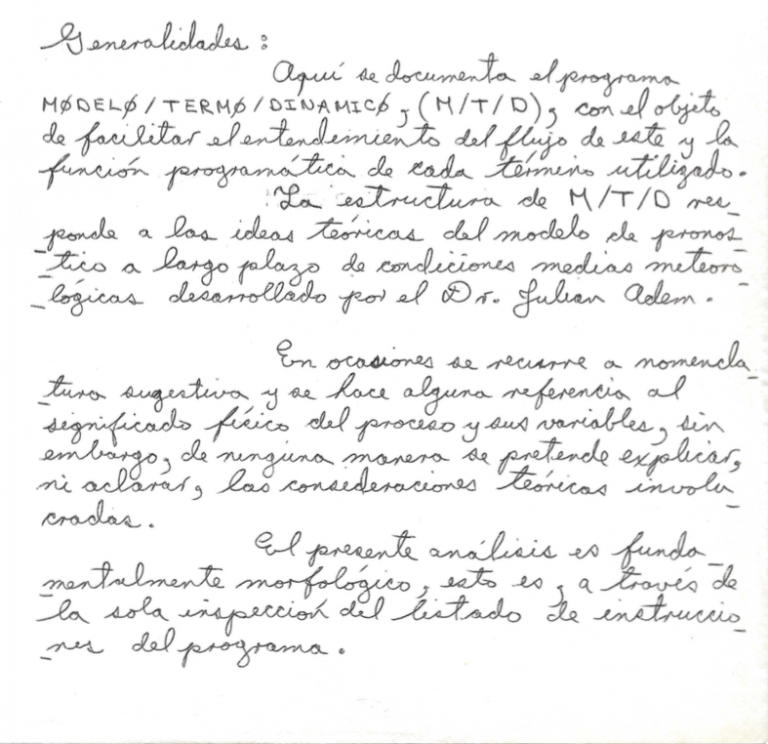 Generalidades:
Aquí se documenta el programa
MØDELØ/TERMØ/DINAMICØ, (M/T/D), con el objeto
de facilitar el entendimiento del flujo de este y la
función programática de cada término utilizado.
La estructura de M/T/D res_
_ponde a las ideas teóricas del modelo de pronos_
_tico a largo plazo de condiciones medias meteoro_
_lógicas desarrollado por el Dr. Julian Adem.
En ocasiones se recurre a nomencla_
_tura sugestiva y se hace alguna referencia al
significado físico del proceso y sus variables, sin
embargo, de ninguna manera se pretende explicar,
ni aclarar, las consideraciones teóricas involu_
cradas.
El presente análisis es funda_
_mentalmente morfológico, esto es, a través de
la sola inspección del listado de instruccio_
_nes del programa.